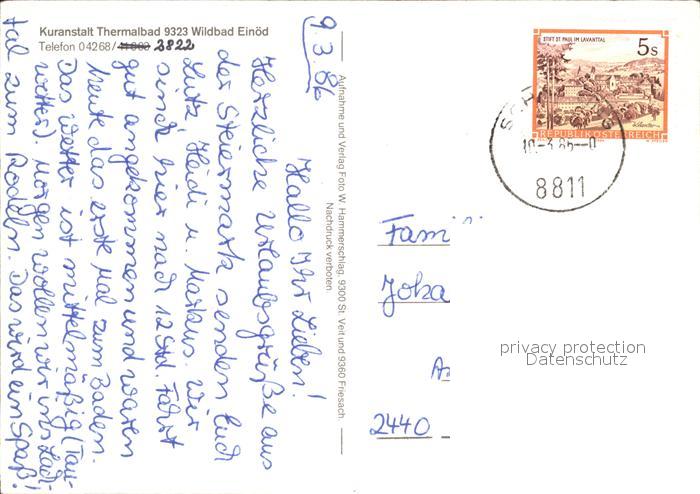 Kuranstalt Thermalbad 9323 Wildbad Einöd
Telefon 04268/ 2822
9.3.86
Hallo Ihr Lieben!
Herzliche Urlaubsgrüße aus
der Steiermark senden Euch
Lutz, Heidi u. Markus. Wir
sind hier nach 12 Std. Fahrt
gut angekommen und waren
heute das erste Mal zum Baden.
Das Wetter ist mittelmäßig (Tau-
wetter). Morgen wollen wir ins
tal zum Rodeln. Das wird ein Spaß!
Aufnahme und Verlag Foto W. Hammerschlag, 9300 St. Veit und 9360 Friesach.
Nachdruck verboten.
STIFT ST. PAUL IM LAVANTTAL
5 S
REPUBLIK ÖSTERREICH
8811
Fami
Joha
2440
privacy protection
Datenschutz